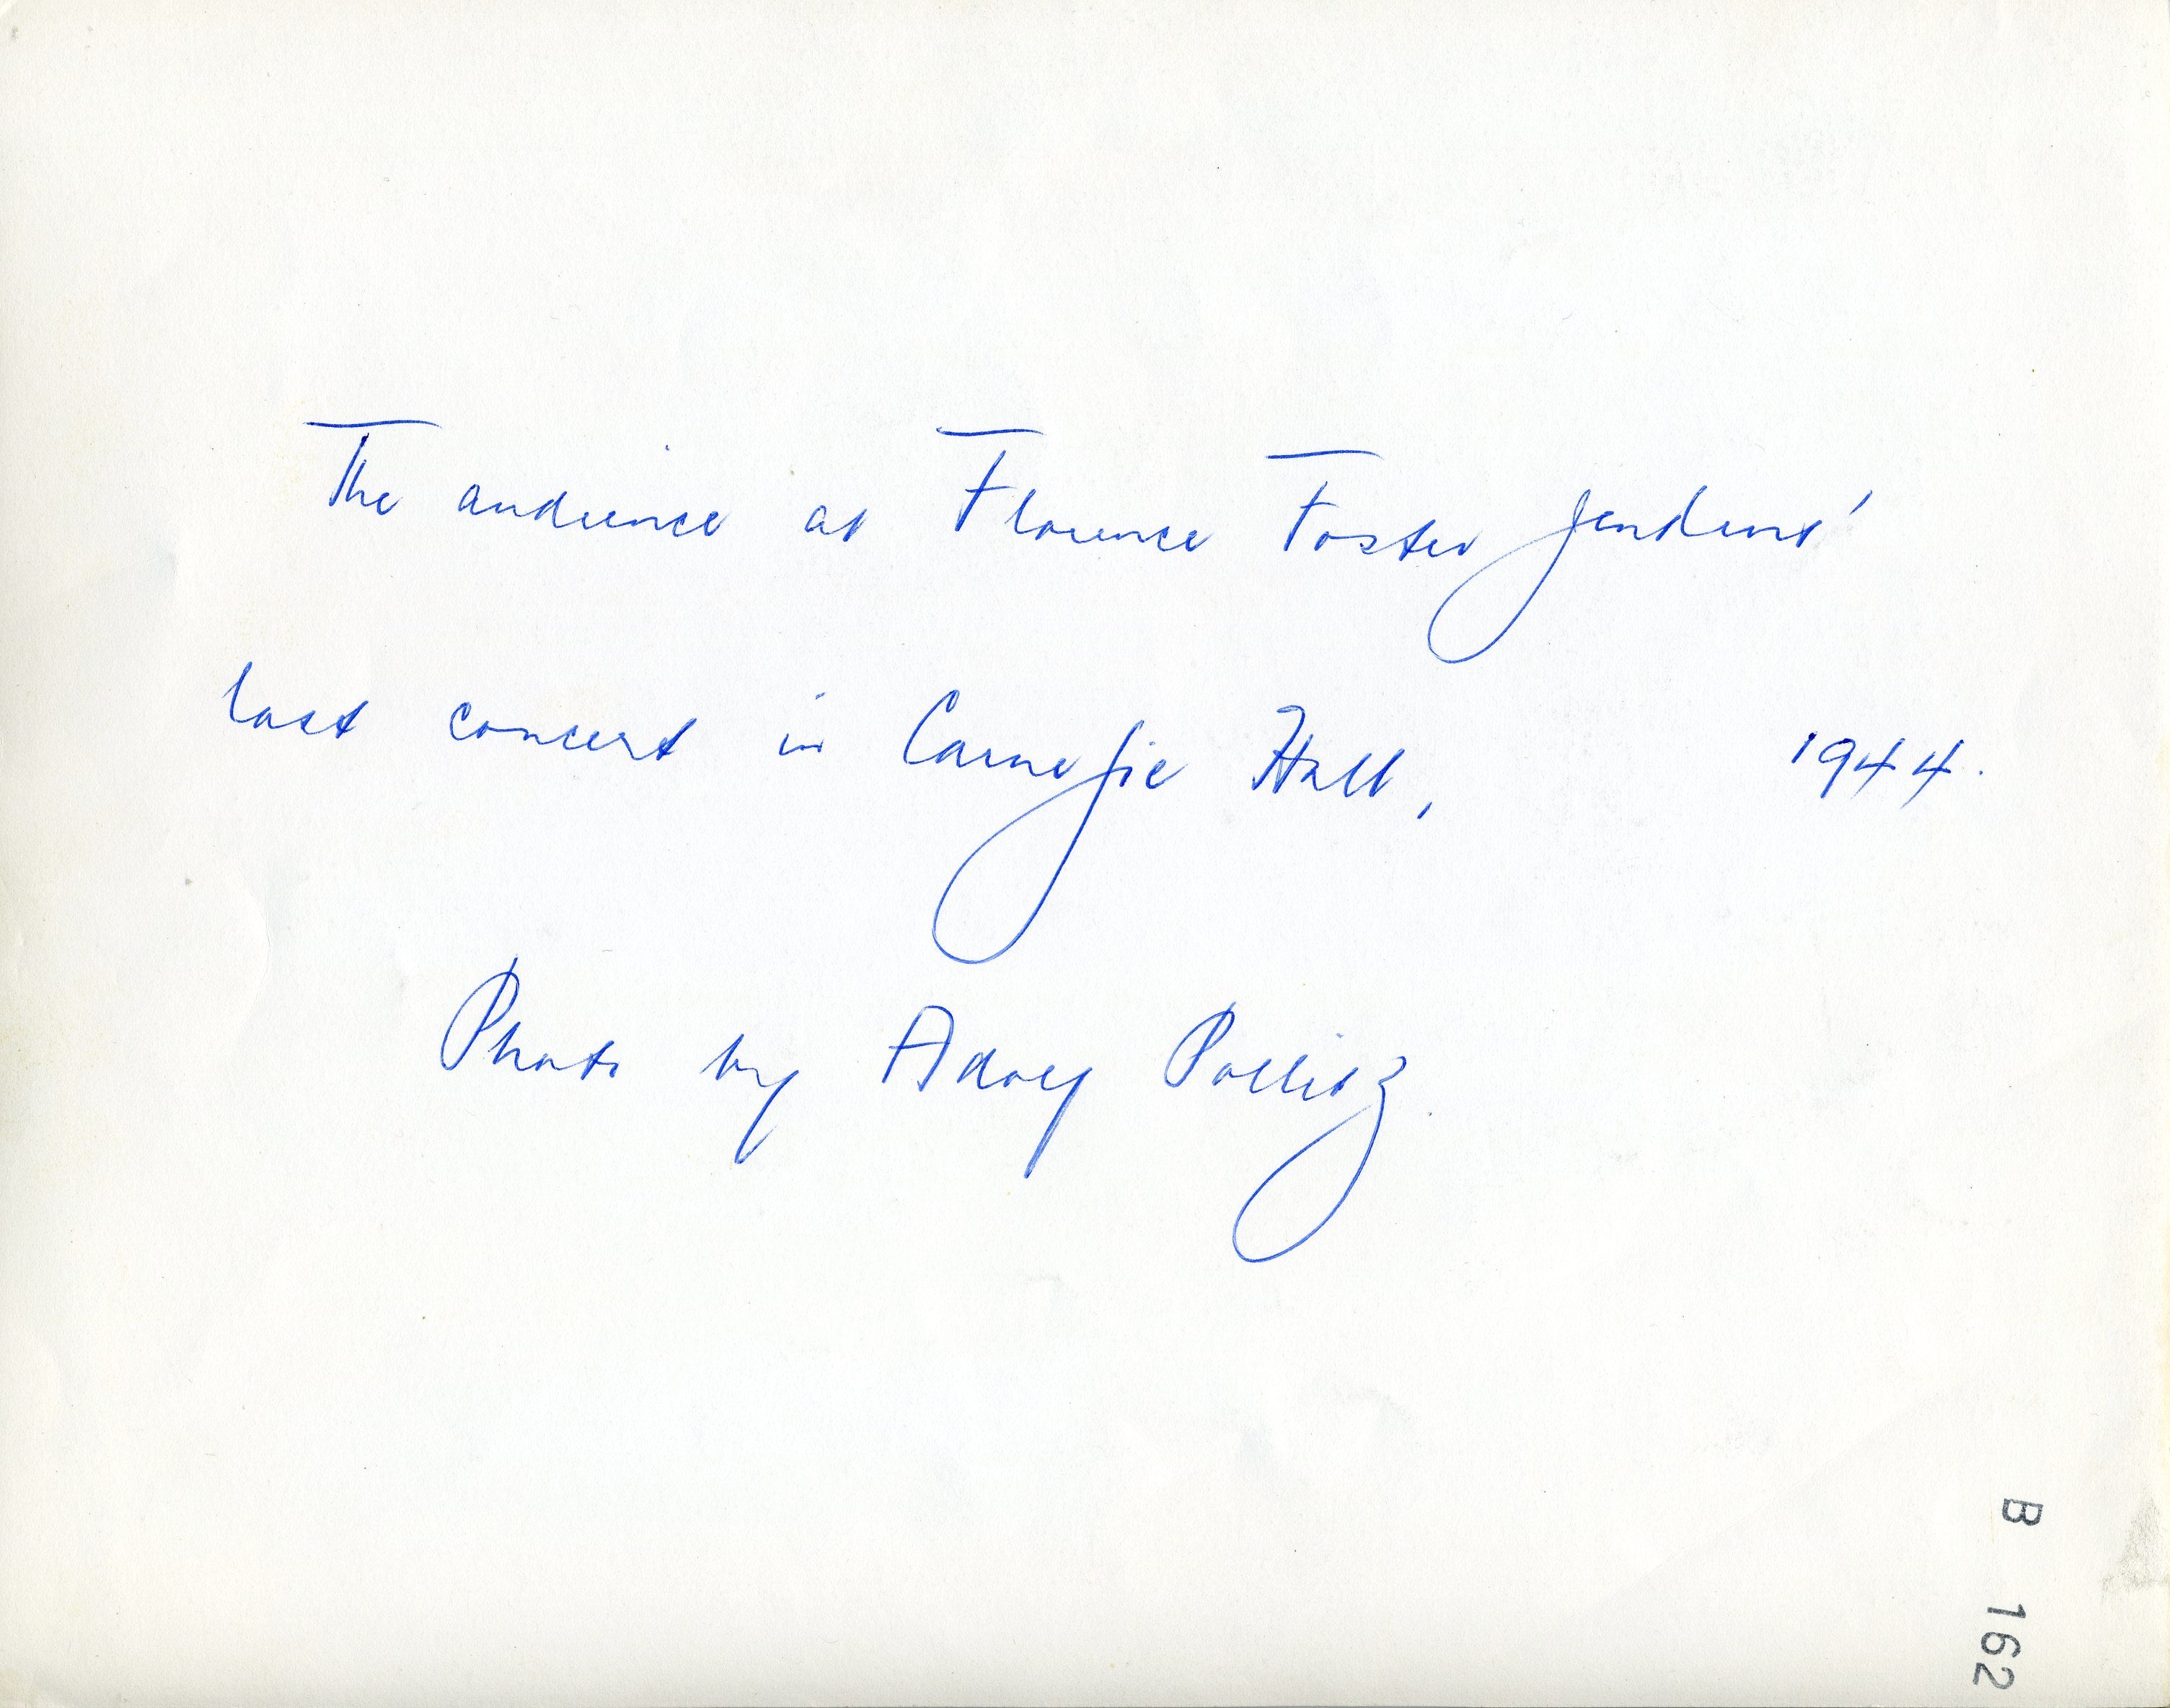 The audience at Florence Foster Jenkins'
last concert in Carnegie Hall, 1944.
Photo by Adolf Pollitz
B 162